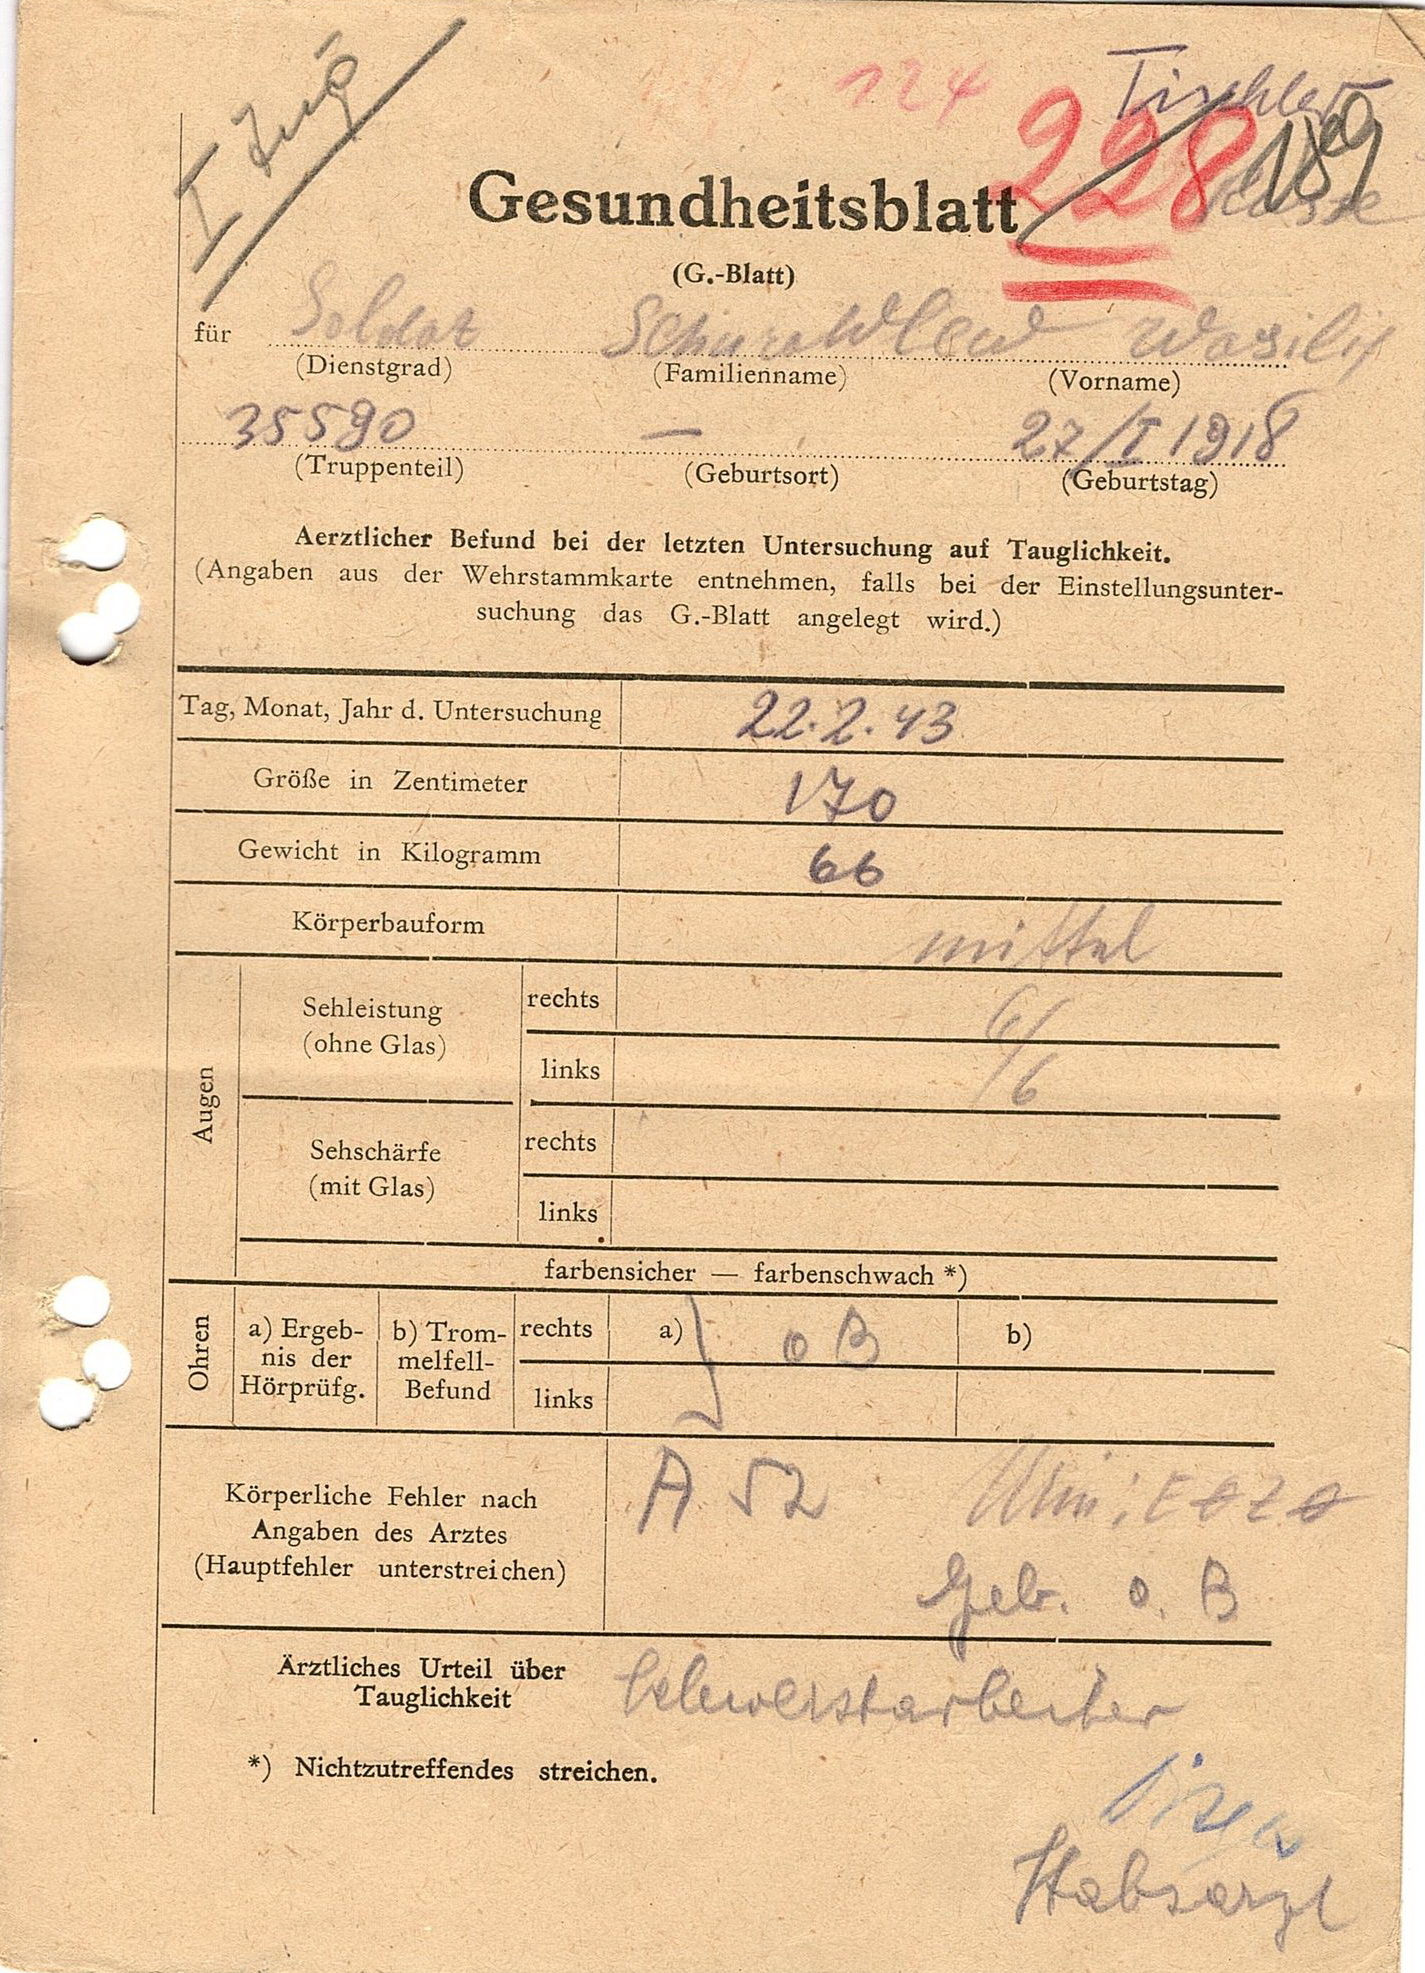 I Zug
124
Tischler
228
189
Gesundheitsblatt
(G.-Blatt)
für Soldat Schurawlew Wasilij
(Dienstgrad) (Familienname) (Vorname)
35590 — 27/I 1918
(Truppenteil) (Geburtsort) (Geburtstag)
Aerztlicher Befund bei der letzten Untersuchung auf Tauglichkeit.
(Angaben aus der Wehrstammkarte entnehmen, falls bei der Einstellungsunter-
suchung das G.-Blatt angelegt wird.)
Tag, Monat, Jahr d. Untersuchung 22.2.43
Größe in Zentimeter 170
Gewicht in Kilogramm 66
Körperbauform mittel
Augen
Sehleistung
(ohne Glas)
rechts 6/
links 6
Sehschärfe
(mit Glas)
rechts
links
farbensicher — farbenschwach *)
Ohren
a) Ergeb-
nis der
Hörprüfg.
b) Trom-
melfell-
Befund
rechts a) } o B b)
links
Körperliche Fehler nach
Angaben des Arztes
(Hauptfehler unterstreichen)
A 52 Urin: E Z
Geb. o. B
Ärztliches Urteil über
Tauglichkeit
Schwerstarbeiter
*) Nichtzutreffendes streichen.
Stabsarzt